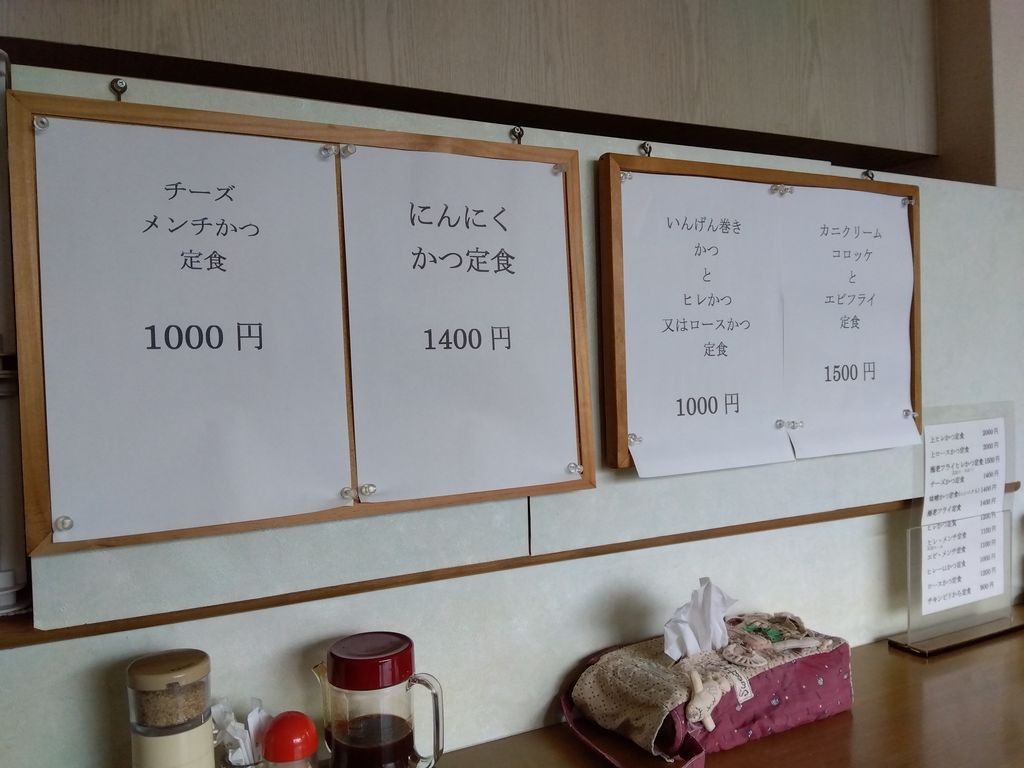 チーズ
メンチかつ
定食
1000 円
にんにく
かつ定食
1400 円
いんげん巻き
かつ
と
ヒレかつ
又はロースかつ
定食
1000 円
カニクリーム
コロッケ
と
エビフライ
定食
1500 円
上ヒレかつ定食 2000 円
上ロースかつ定食 2000 円
海老フライヒレかつ定食 1500 円
チーズかつ定食 1400 円
味噌かつ定食 1400 円
海老フライ定食 1400 円
ヒレかつ定食 1200 円
ヒレ・メンチ定食 1100 円
エビ・メンチ定食 1100 円
ロースかつ定食